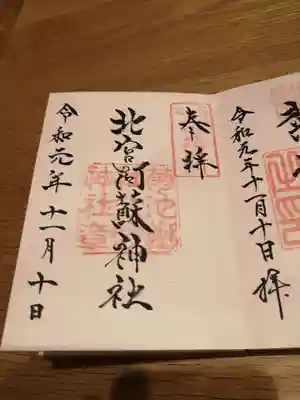 奉拝
北宮阿蘇神社
令和元年十一月十日
令和元年十一月十日拝